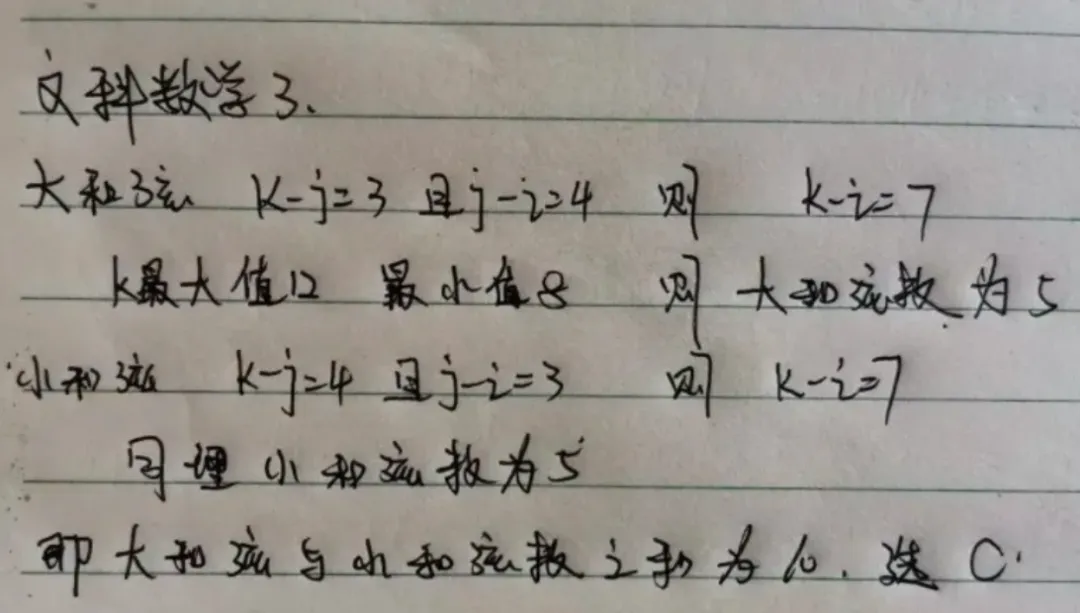 文科数学3.
大和弦 k-j=3 且j-i=4 则 k-i=7
k最大值12 最小值8 则 大和弦数为5
小和弦 k-j=4 且j-i=3 则 k-i=7
同理小和弦数为5
即大和弦与小和弦数之和为10.选C.